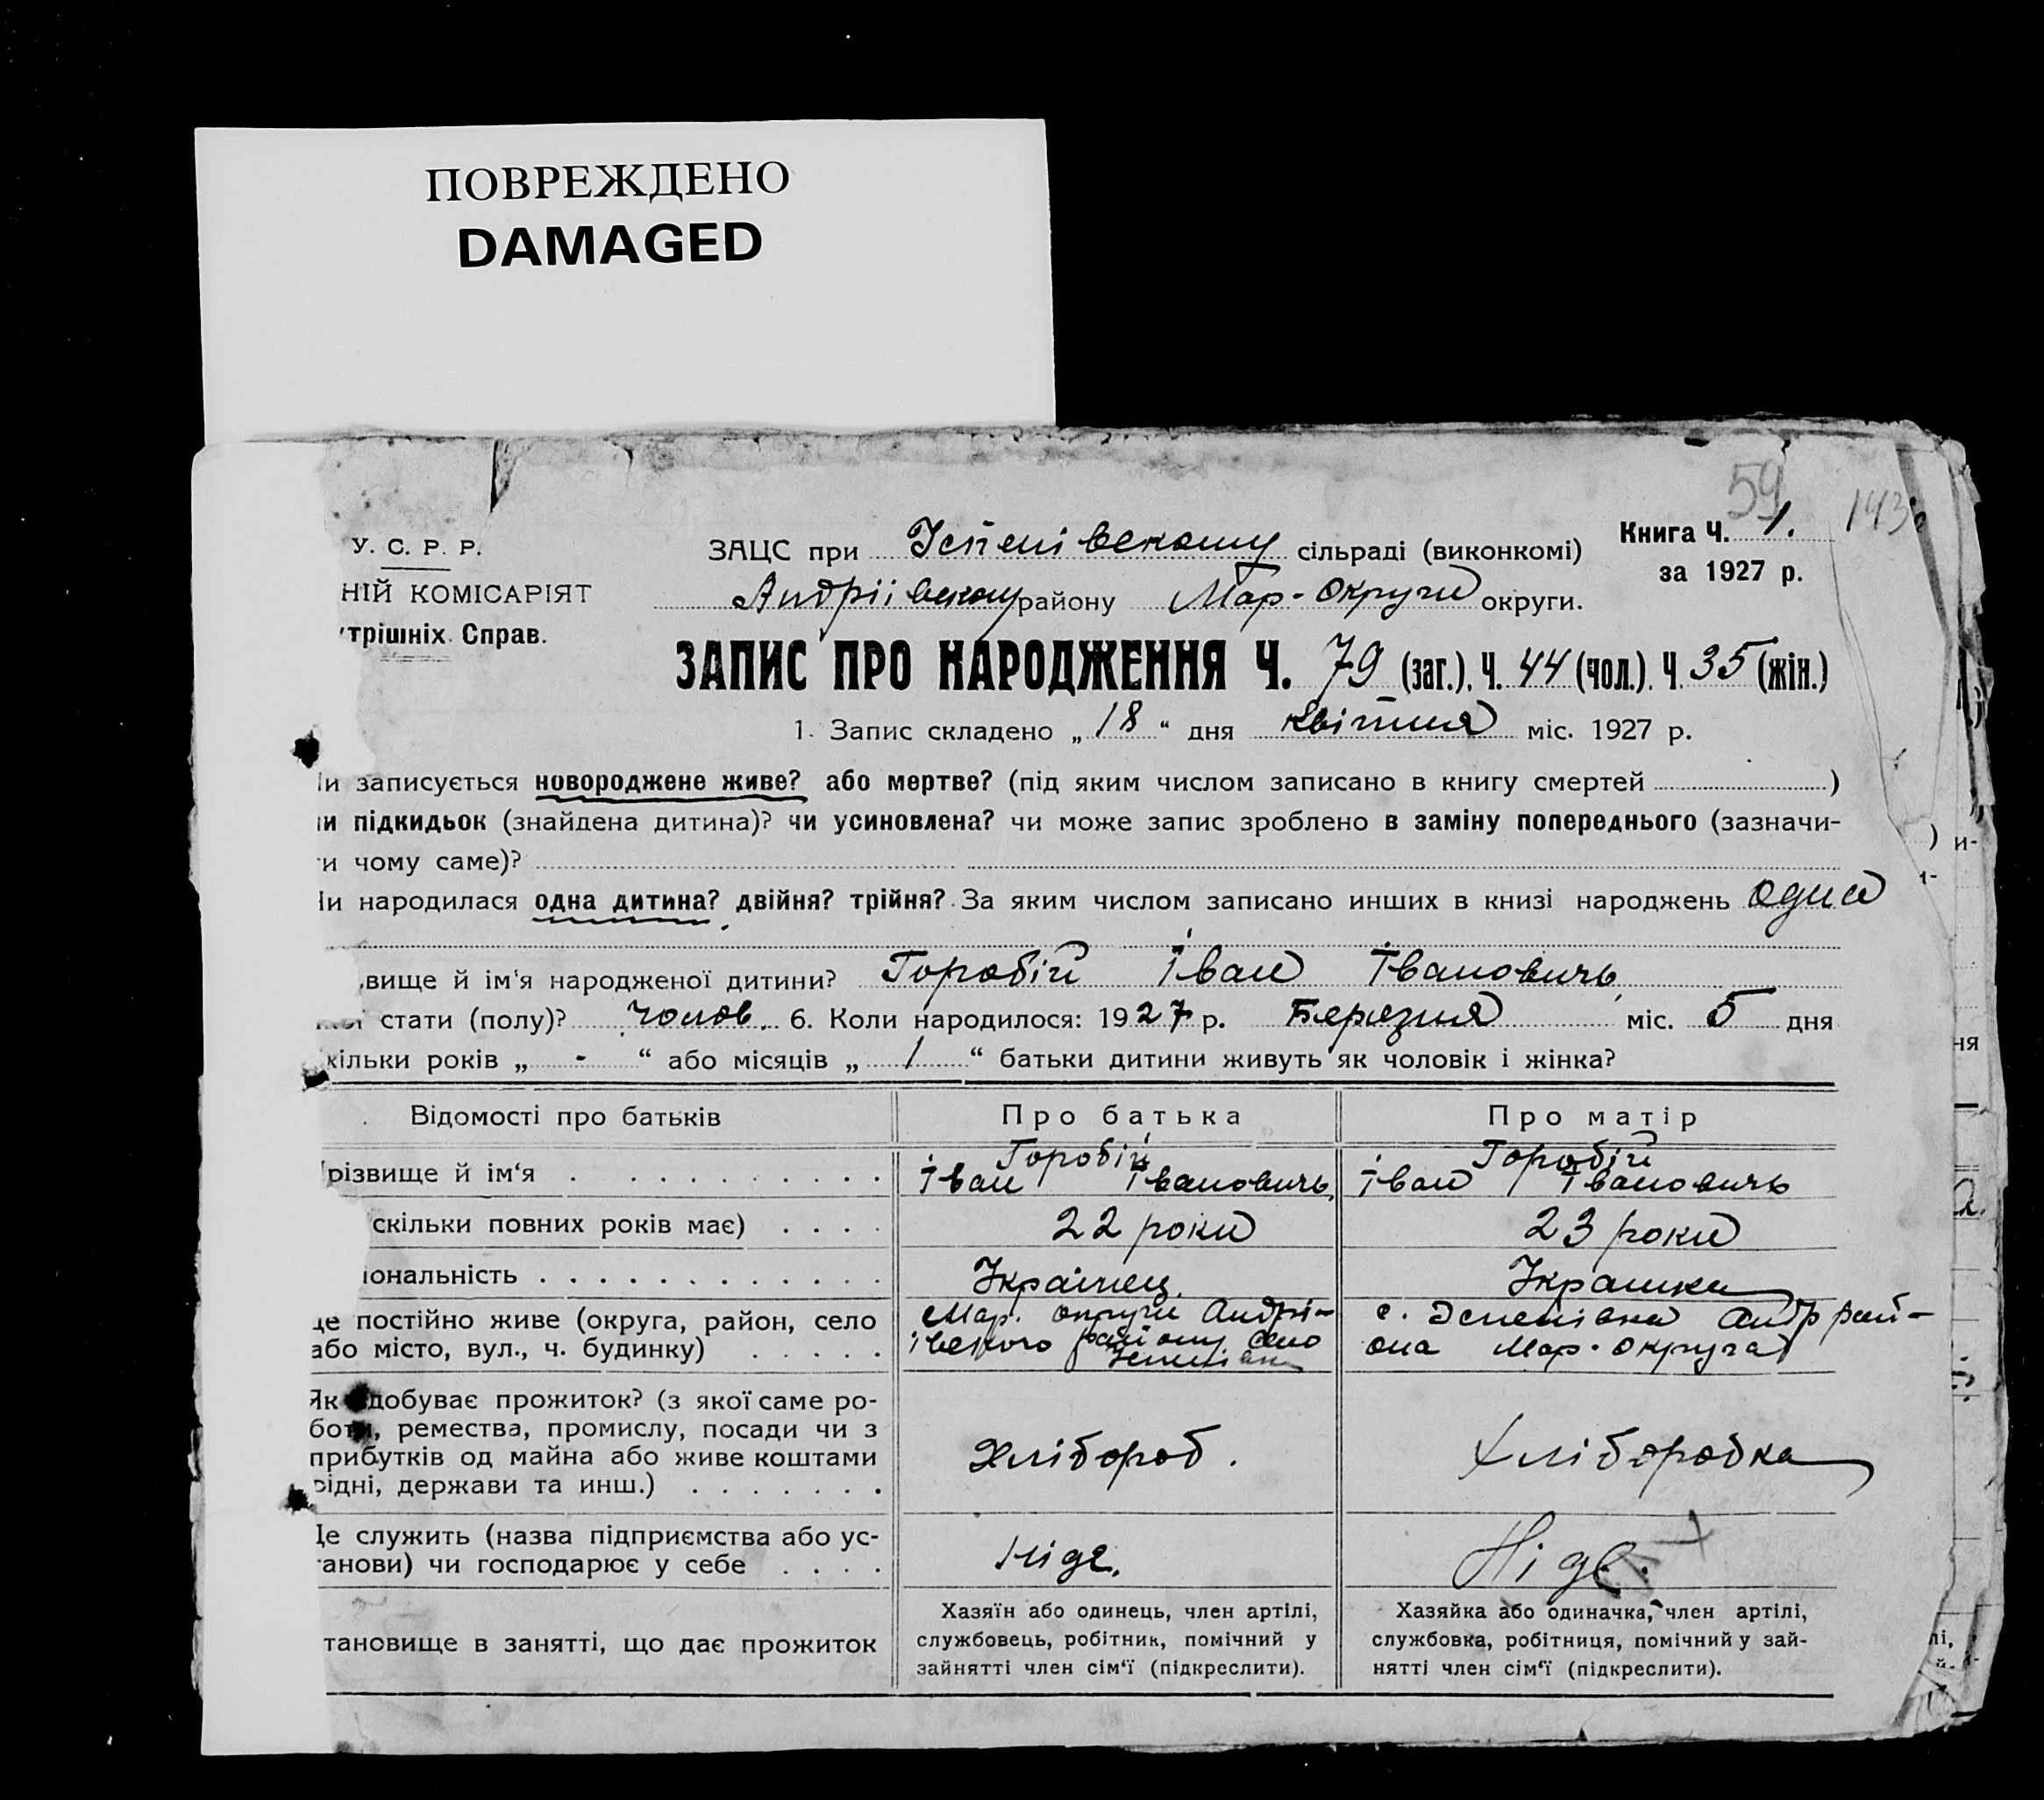 ПОВРЕЖДЕНО
DAMAGED
59
143
У. С. Р. Р.
ЗАЦС при Успенівському сільраді (виконкомі)
Книга Ч. 1.
за 1927 р.
НІЙ КОМІСАРІЯТ
Андріївському району Мар-Округи округи.
трішніх Справ.
ЗАПИС ПРО НАРОДЖЕННЯ Ч. 79 (заг.). Ч. 44 (чол.). Ч. 35 (жін.)
1. Запис складено „ 18 “ дня квітня міс. 1927 р.
и записується новороджене живе? або мертве? (під яким числом записано в книгу смертей )
и підкидьок (знайдена дитина)? чи усиновлена? чи може запис зроблено в заміну попереднього (зазначи-
и чому саме)?
и народилася одна дитина? двійня? трійня? За яким числом записано инших в книзі народжень
вище й ім‘я народженої дитини? Горобій Іван Івановичь
стати (полу)? чолов. 6. Коли народилося: 1927 р. Березня міс. 5 дня
кільки років „ - “ або місяців „ 1 “ батьки дитини живуть як чоловік і жінка?
Відомості про батьків
Про батька
Про матір
різвище й ім‘я
Горобій
Іван Івановичь
Горобій
Іван Івановичь
скільки повних років має)
22 роки
23 роки
іональність
Українец
Украинка
де постійно живе (округа, район, село
або місто, вул., ч. будинку)
Мар. округи Андрі-
івского району село
с. Успенівка Андр рай-
она Мар. Округа
Як здобуває прожиток? (з якої саме ро-
боти, ремества, промислу, посади чи з
прибутків од майна або живе коштами
рідні, держави та инш.)
Хлібороб.
Хліборобка
Де служить (назва підприємства або ус-
танови) чи господарює у себе
Нігде.
Нігде.
тановище в занятті, що дає прожиток
Хазяїн або одинець, член артілі,
службовець, робітник, помічний у
зайнятті член сім‘ї (підкреслити).
Хазяйка або одиначка, член артілі,
службовка, робітниця, помічний у зай-
нятті член сім‘ї (підкреслити).